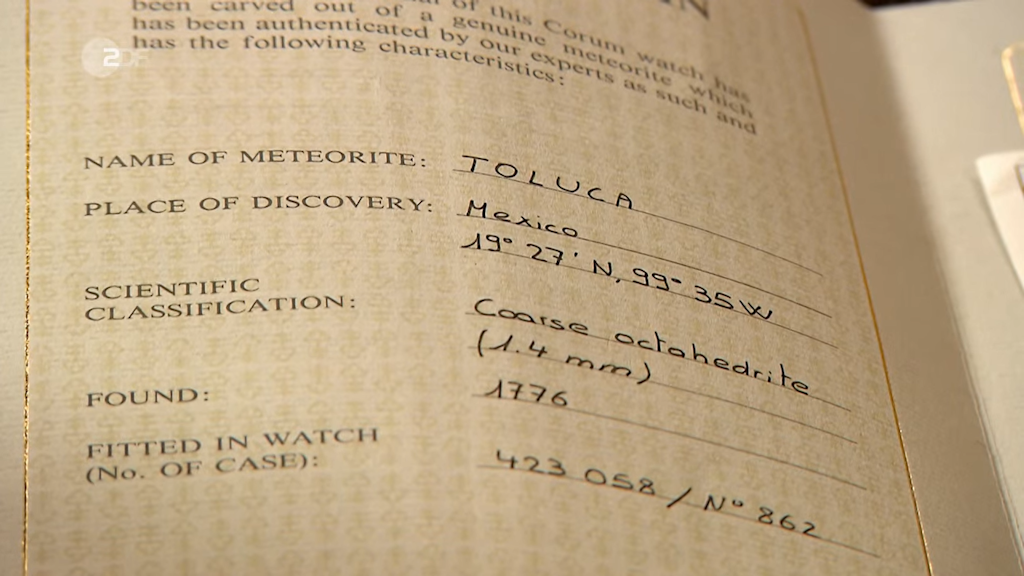 N
of this Corum watch has
been carved out of a genuine meteorite which
has been authenticated by our experts as such and
has the following characteristics:
2DF
NAME OF METEORITE: TOLUCA
PLACE OF DISCOVERY: Mexico
19° 27' N, 99° 35 W
SCIENTIFIC
CLASSIFICATION: Coarse octahedrite
(1.4 mm)
FOUND: 1776
FITTED IN WATCH
(No. OF CASE): 423 058 / N° 862